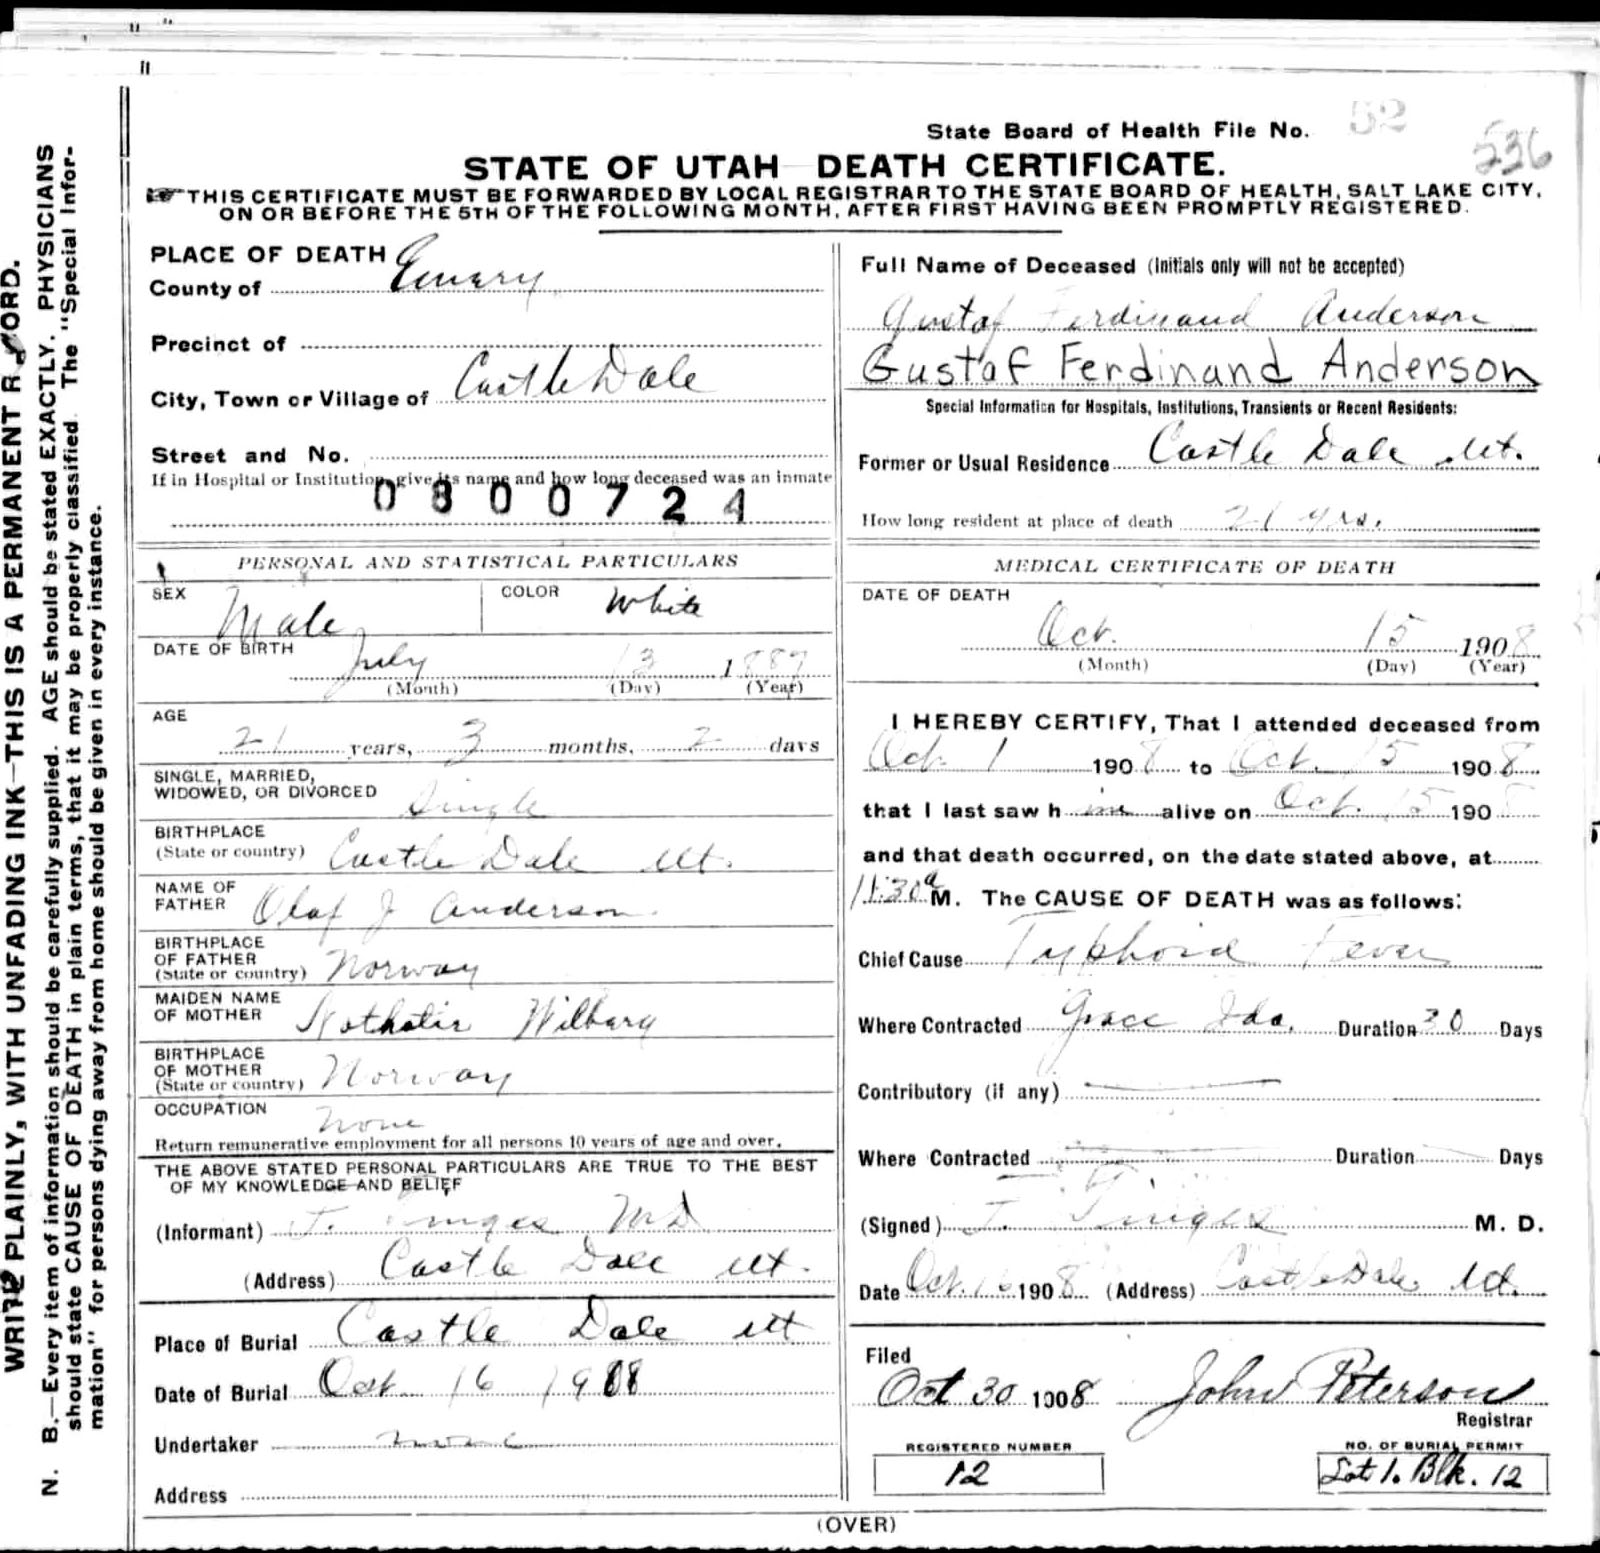 WRITE PLAINLY, WITH UNFADING INK—THIS IS A PERMANENT RECORD.
N. B.—Every item of information should be carefully supplied. AGE should be stated EXACTLY. PHYSICIANS
should state CAUSE OF DEATH in plain terms, that it may be properly classified. The "Special Infor-
mation" for persons dying away from home should be given in every instance.
State Board of Health File No. 52
536
STATE OF UTAH DEATH CERTIFICATE.
THIS CERTIFICATE MUST BE FORWARDED BY LOCAL REGISTRAR TO THE STATE BOARD OF HEALTH, SALT LAKE CITY,
ON OR BEFORE THE 5TH OF THE FOLLOWING MONTH, AFTER FIRST HAVING BEEN PROMPTLY REGISTERED.
PLACE OF DEATH
County of Emery
Precinct of
City, Town or Village of Castle Dale
Street and No.
If in Hospital or Institution, give its name and how long deceased was an inmate
0800724
Full Name of Deceased (Initials only will not be accepted)
Gustaf Ferdinand Anderson
Gustaf Ferdinand Anderson
Special Information for Hospitals, Institutions, Transients or Recent Residents:
Former or Usual Residence Castle Dale Ut.
How long resident at place of death 21 yrs.
PERSONAL AND STATISTICAL PARTICULARS
SEX Male COLOR White
DATE OF BIRTH July 13 1887
(Month) (Day) (Year)
AGE
21 years, 3 months, 2 days
SINGLE, MARRIED,
WIDOWED, OR DIVORCED Single
BIRTHPLACE
(State or country) Castle Dale Ut.
NAME OF
FATHER Olaf J Anderson
BIRTHPLACE
OF FATHER
(State or country) Norway
MAIDEN NAME
OF MOTHER Nathalie Wilburg
BIRTHPLACE
OF MOTHER
(State or country) Norway
OCCUPATION None
Return remunerative employment for all persons 10 years of age and over.
THE ABOVE STATED PERSONAL PARTICULARS ARE TRUE TO THE BEST
OF MY KNOWLEDGE AND BELIEF
(Informant) J. MD
(Address) Castle Dale Ut.
Place of Burial Castle Dale Ut
Date of Burial Oct 16 1908
Undertaker none
Address
MEDICAL CERTIFICATE OF DEATH
DATE OF DEATH
Oct. 15 1908
(Month) (Day) (Year)
I HEREBY CERTIFY, That I attended deceased from
Oct. 1 1908 to Oct. 15 1908
that I last saw h im alive on Oct. 15 1908
and that death occurred, on the date stated above, at
11:30 a M. The CAUSE OF DEATH was as follows:
Chief Cause Typhoid Fever
Where Contracted Grace Ida. Duration 30 Days
Contributory (if any)
Where Contracted Duration Days
(Signed) J. M. D.
Date Oct. 16 1908 (Address) Castle Dale Ut.
Filed
Oct 30 1908 John Peterson
Registrar
REGISTERED NUMBER
12
NO. OF BURIAL PERMIT
Lot 1. Blk. 12
(OVER)